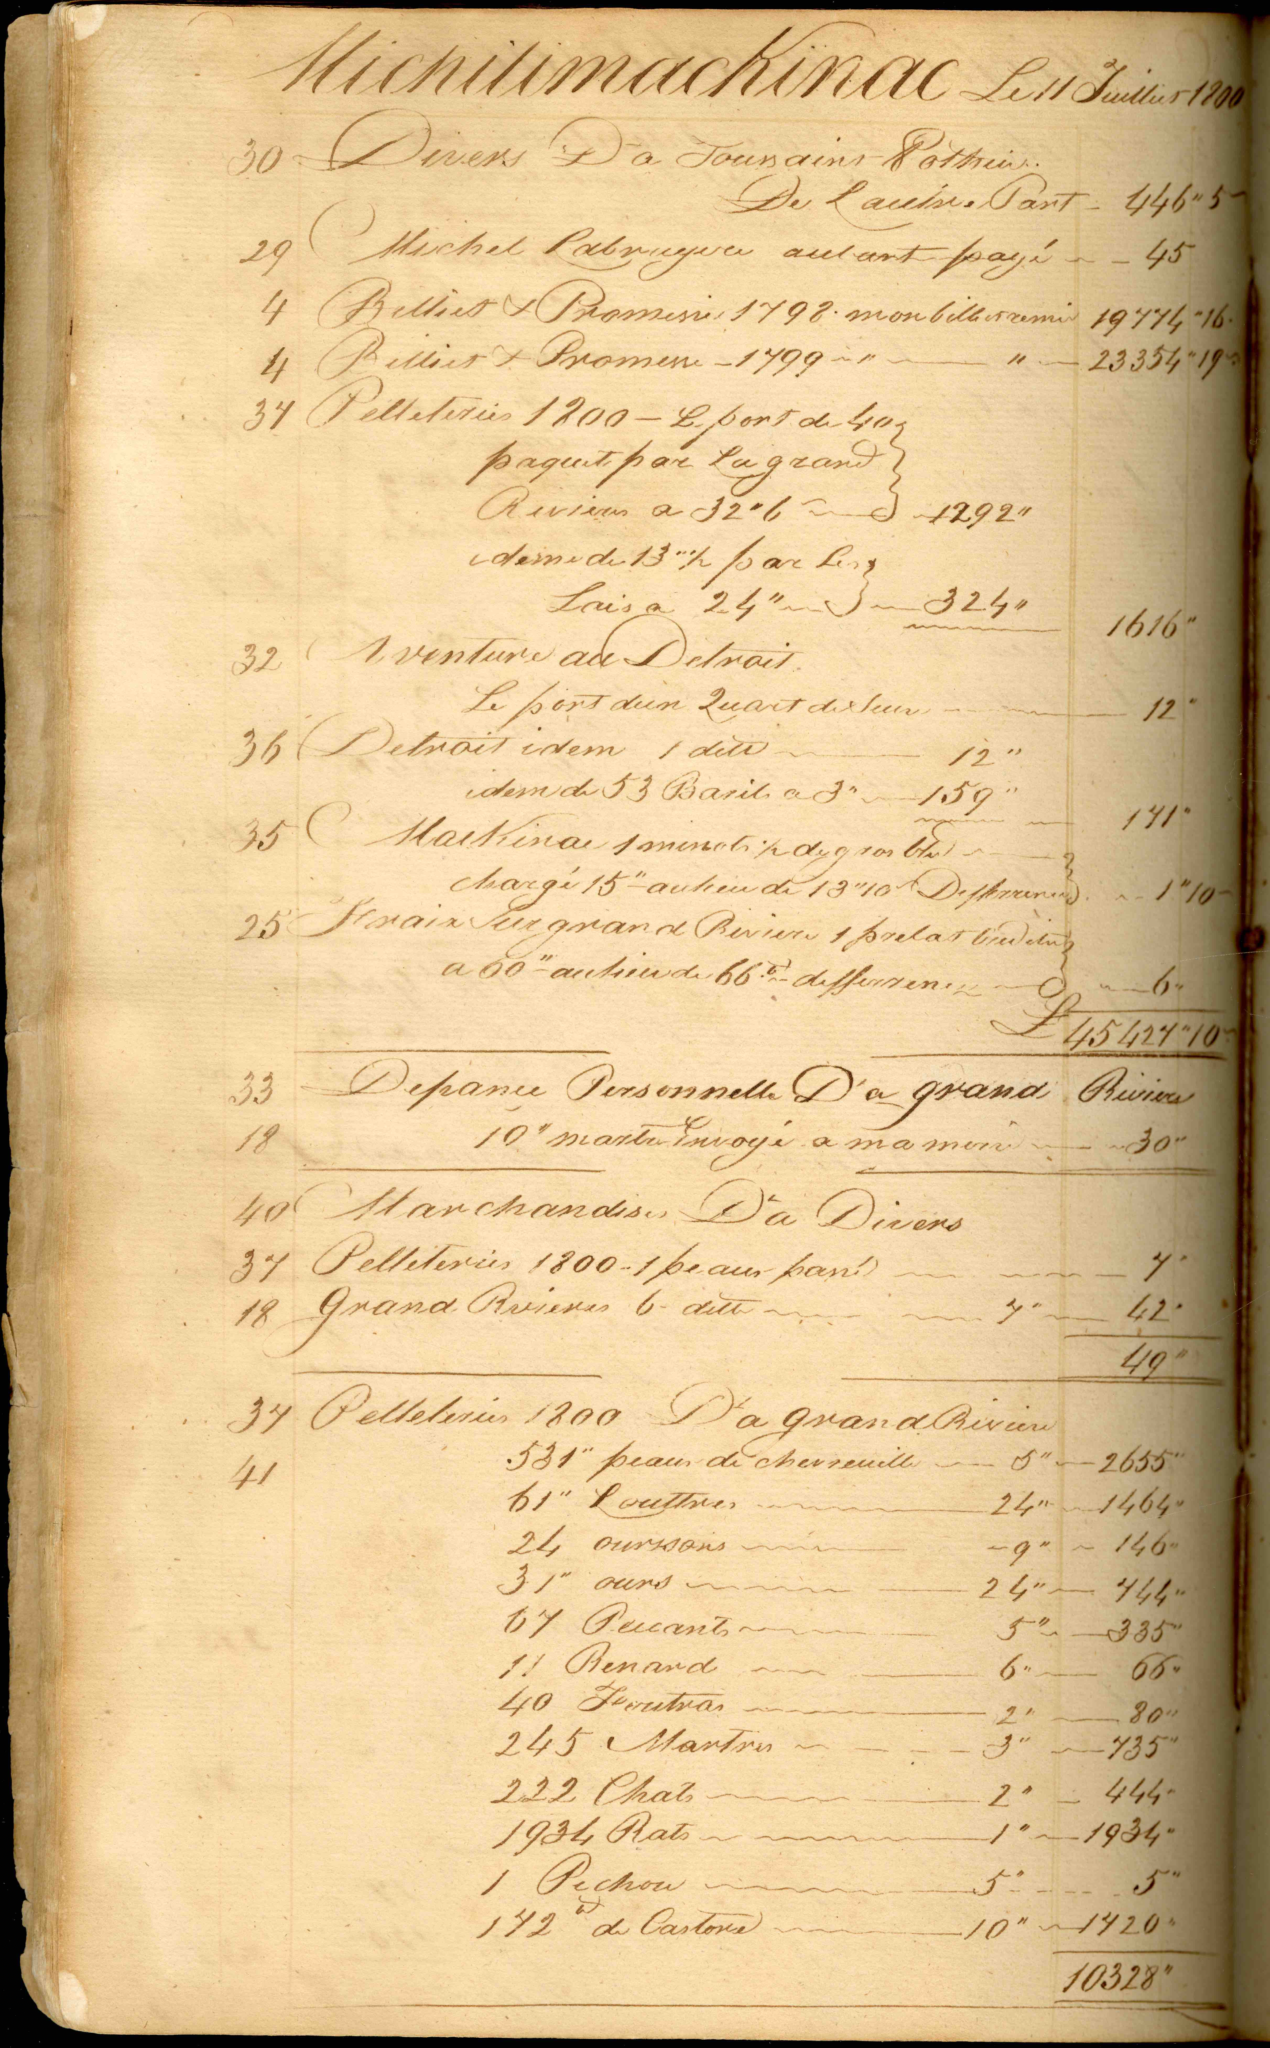 Michilimackinac Le 11 Juillet 1800
30 Divers Dr a Toussaint Pothier
De Lautre Part 446" 5
29 Michel Labruyere autant payé 45
4 Billiet & Promesse 1798 mon billet remis 19774 "16
4 Billiet & Promesse - 1799 " " 23354 "19
37 Pelleteries 1800 - Le port de 40
paquets par La grand
Riviere a 32"6 1292"
idem de 13"½ par Les
Lais a 24" 324" 1616"
32 Aventure au Detroit
Le port dun Quart de 12"
36 Detroit idem 1 ditto 12"
idem de 53 Barils a 3" 159" 171"
35 Mackinac 1 minots ½ de gros bled
chargé 15" au lieu de 13"10 Defference 1"10
25 Fraix Sur grand Riviere 1 prelat
a 60" au lieu de 66 defference 6"
£ 45427"10
33 Depance Personnelle Dr a grand Riviere
18 10" martre Envoyé a ma mere 30"
40 Marchandises Dr a Divers
37 Pelleteries 1800 - 1 peaux 7"
18 Grand Rivieres 6 ditto 7" 42"
49"
37 Pelleteries 1800 Dr a grand Riviere
41 531" peaux de chevreuille 5" 2655"
61" Louttres 24" 1464"
24 ourssons 9" 146"
31" ours 24" 744"
67 Peccants 5" 335"
11 Renard 6" 66"
40 Foutros 2" 80"
245 Martres 3" 735"
222 Chats 2" 444"
1934 Rats 1" 1934"
1 Pichou 5" 5"
172 lb de Castore 10" 1720"
10328"